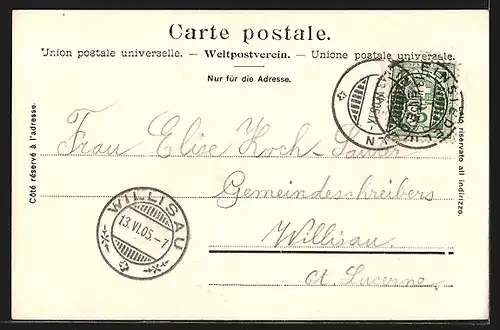 Carte postale.
Union postale universelle. - Weltpostverein. - Unione postale universale.
Nur für die Adresse.
Côté réservé à l'adresse.
lato riservato all indirizzo.
EINSIEDELN
Frau Elise Koch-Sauter
Gemeindeschreibers
Willisau
Ct. Lucerne
WILLISAU
13.VI.05.-7